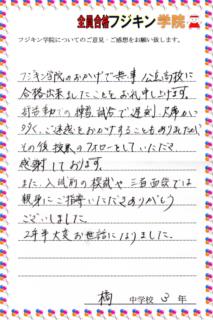 全員合格フジキン学院
フジキン学院についてのご意見・ご感想をお願い致します。
フジキン学院のおかげで無事公立高校に
合格出来ましたことをお礼申し上げます。
部活動での練習、試合で遅刻、欠席が
多く、ご迷惑をおかけすることもありましたが、
その後、授業のフォローをしていただき
感謝しております。
また、入試前の模試や三者面談では
親身にご指導いただきありがとう
ございました。
2年半大変お世話になりました。
中学校 3 年